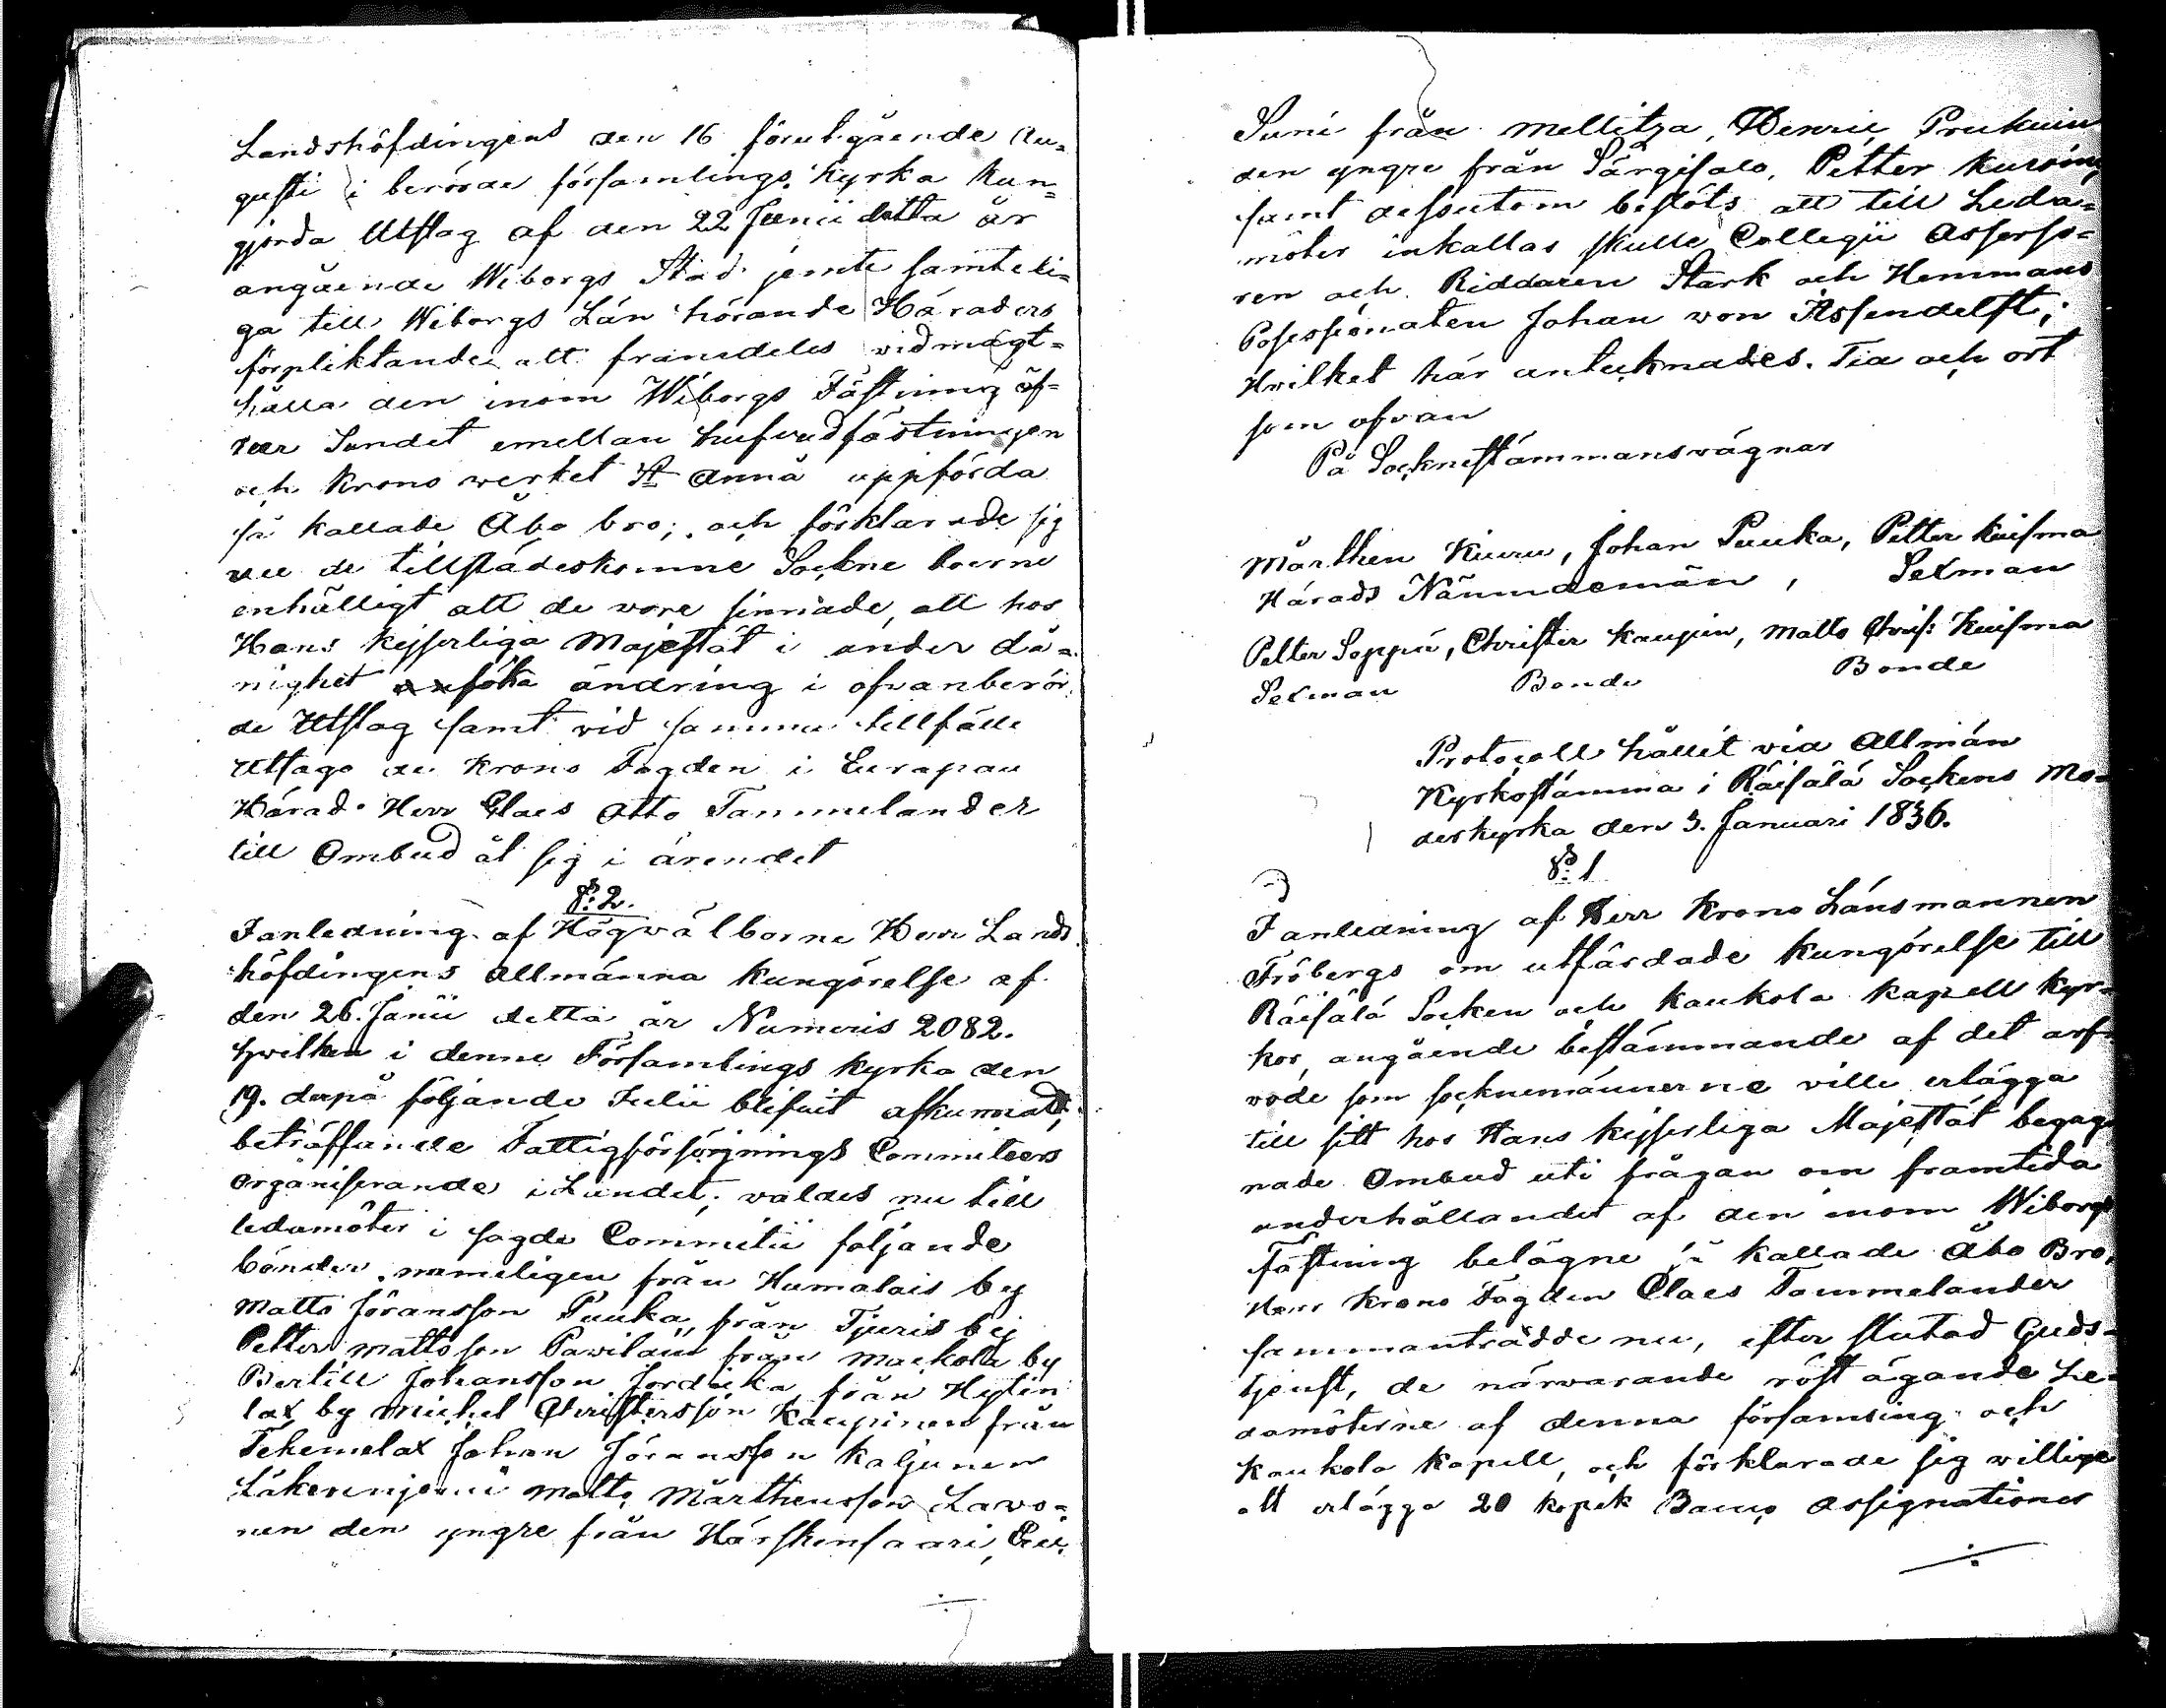 Landshöfdingens den 16 förutgående Au=
gusti i berörde församlings Kyrka kun=
gjorda Utslag af den 22 Junii detta år
angående Wiborgs Stad jemte samteli=
ga till Wiborgs Län hörande Härads
förpliktande att framdeles vidmagt=
hålla den inom Wiborgs Fästning öf=
wer Sundet emellan hufvudfästningen
och Krono werket St Annä uppförda
så kallade Åbo bro; och förklarade sig
nu de tillstädeskomne Sockne boerne
enhälligt att de vore sinnade, att hos
Hans Kejserliga Majestät i under då=
nighet söka ändring i ofvanberör
de Utslag samt vid samma tillfälle
Uttago de Krono Fogden i Eurapau
Härad Herr Claes Otto Tammelander
till Ombud åt sig i ärendet
§: 2.
I anledning af Högwälborne Herr Lands
höfdingens Allmänna kungörelse af
den 26. Junii detta år Numeris 2082.
hwilken i denne Församlings kyrka den
19. derpå följande Julii blifvit afkunnadt,
beträffande Fattigförsörjnings Commiteers
organiserande i Landet; valdes nu till
ledamöter i sagde Commitii följande
bönder nameligen från Humalais by
Matts Jöransson Puuka, från Tjuris by
Petter Mattsson Pawilain från Mackola by
Bertill Johansson Jordicka från Hytin
lax by Michel Christersson Kaupinen från
Tehemelax Johan Jöransson Kaljunen
Matts Mårthensson Lavo=
nen den yngre från Härskensaari,
Suni från Mellitza, Henric Prukuin
den yngre från Särgisalo, Petter
samt dessutom beslöts att till Leda=
möter inkallas skulle Collegii Assesso=
ren och Riddaren Stark och Hemmans
Possessionaten Johan von Assendelft;
Hvilket här antecknades. Tid och ort
som ofvan
På Socknestämmans vägnar
Mårthen Kiuru, Johan Puuka, Petter Kuisma
Härads Nämndemän, Sexman
Petter Soppü, Christer Kaupin, Matts Chris: Kuisma
Sexman Bonde Bonde
Protocoll hållit vid Allmän
Kyrkostämma i Räisälä Sockens Mo=
derkyrka den 3. Januari 1836.
§: 1
I anledning af Herr Krono Länsmannen
Fröbergs om utfärdade kungörelse till
Räisälä Socken och Kaukola kapell kyr=
kor, angående bestämmande af det arf=
vode som socknemännerne ville erlägga
till sitt hos Hans Kejserliga Majestät begag
nade Ombud uti frågan om framtida
underhållandet af den inom Wiborgs
Fästning belägne så kallade Åbo Bro,
Herr Krono Fogden Claes Tammelander
sammanträdde nu, efter slutad Guds=
tjenst, de närwarande röst ägande Le=
damöterne af denna församling och
Kaukola Kapell, och förklarade sig willige
att erlägga 20 kopek Banco Assignationer